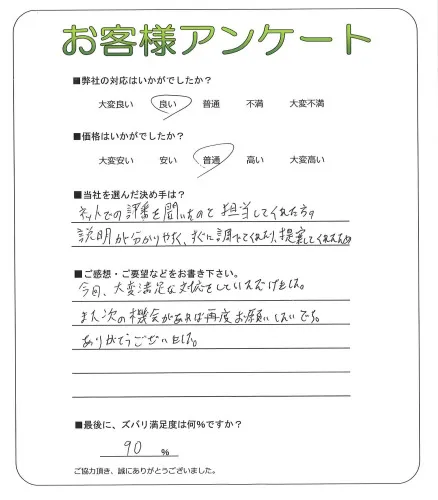 お客様アンケート
■弊社の対応はいかがでしたか？
大変良い 良い 普通 不満 大変不満
■価格はいかがでしたか？
大変安い 安い 普通 高い 大変高い
■当社を選んだ決め手は？
ネットでの評番を聞いたのと担当してくれた方の
説明が分かりやすく、すぐに調べてくれたり、提案してくれたため
■ご感想・ご要望などをお書き下さい。
今回、大変満足な対応をしていただけました。
また次の機会があれば再度お願いしたいです。
ありがとうございました。
■最後に、ズバリ満足度は何％ですか？
90 ％
ご協力頂き、誠にありがとうございました。